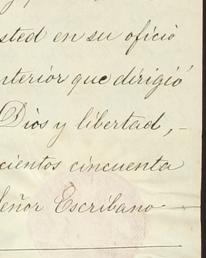 usted en su oficio
anterior que dirigió
Dios y libertad, –
cientos cincuenta
Señor Escribano